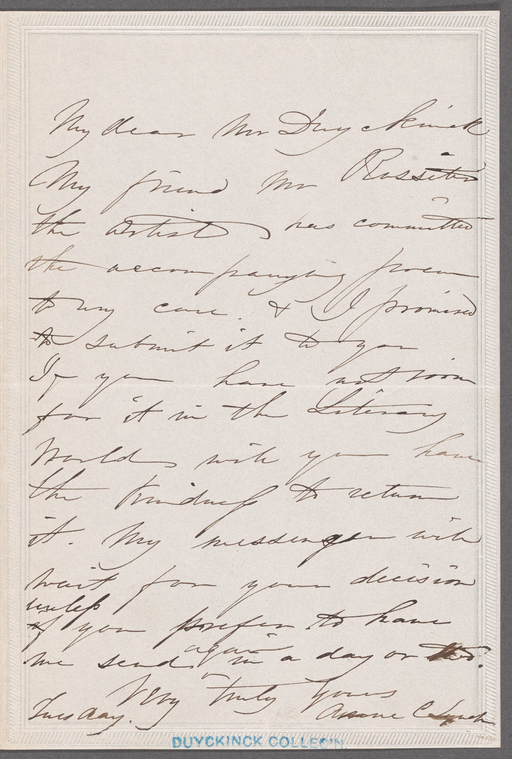 My dear Mr Duyckinck
My friend Mr Rossiter
the artist, has committed
the accompanying poem
to my care. & I promised
to submit it to you
If you have not room
for it in the Literary
World, will you have
the kindness to return
it. My messenger will
wait for your decision
unless
you prefer to have
me send again in a day or two.
Very truly yours
Tuesday. Anne C Lynch
DUYCKINCK COLLEC'N